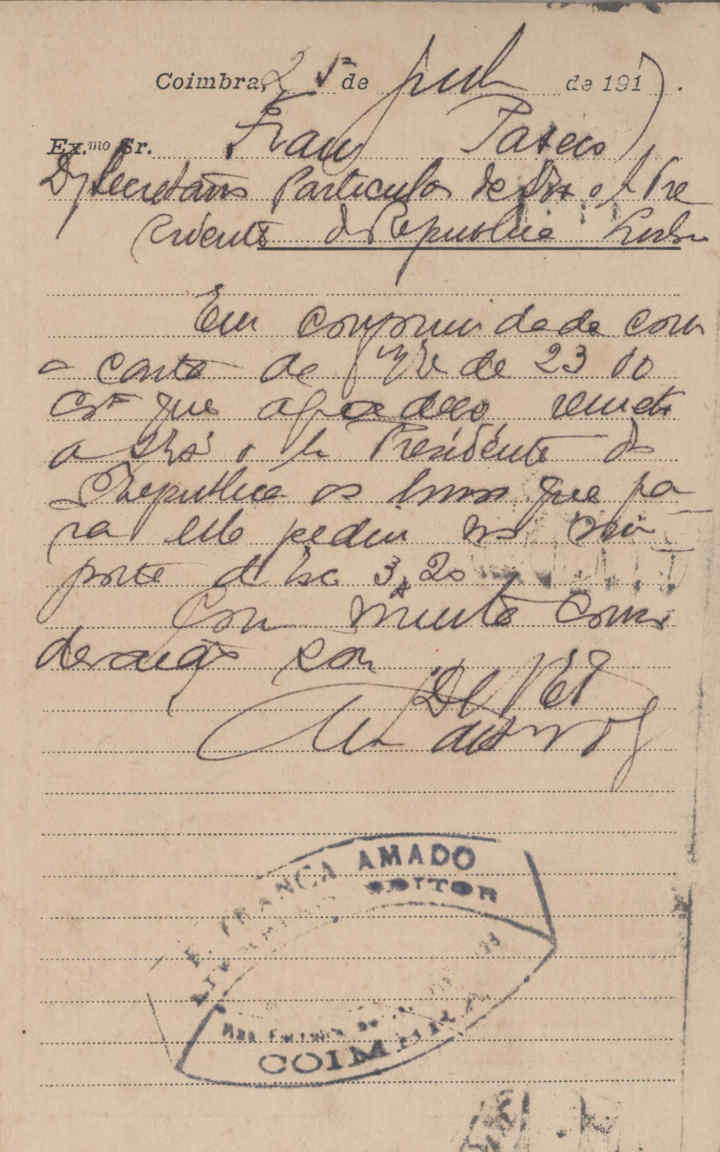 Coimbra, 25 de de 1917.
Ex.mo Sr. Fran Paxeco
Secretario Particular de S Exa o Sr Pre
sidente d Republica Lisboa
Em conformidade com
a carta de V. Ex de 23 do
que agradeço remeto
a S Exa o Sr Presidente da
Republica os livros que pa
ra ele pediu no im
porte d Esc 3,20
Com muita consi
deração sou
De V. Ex
F. FRANÇA AMADO
EDITOR
COIMBRA